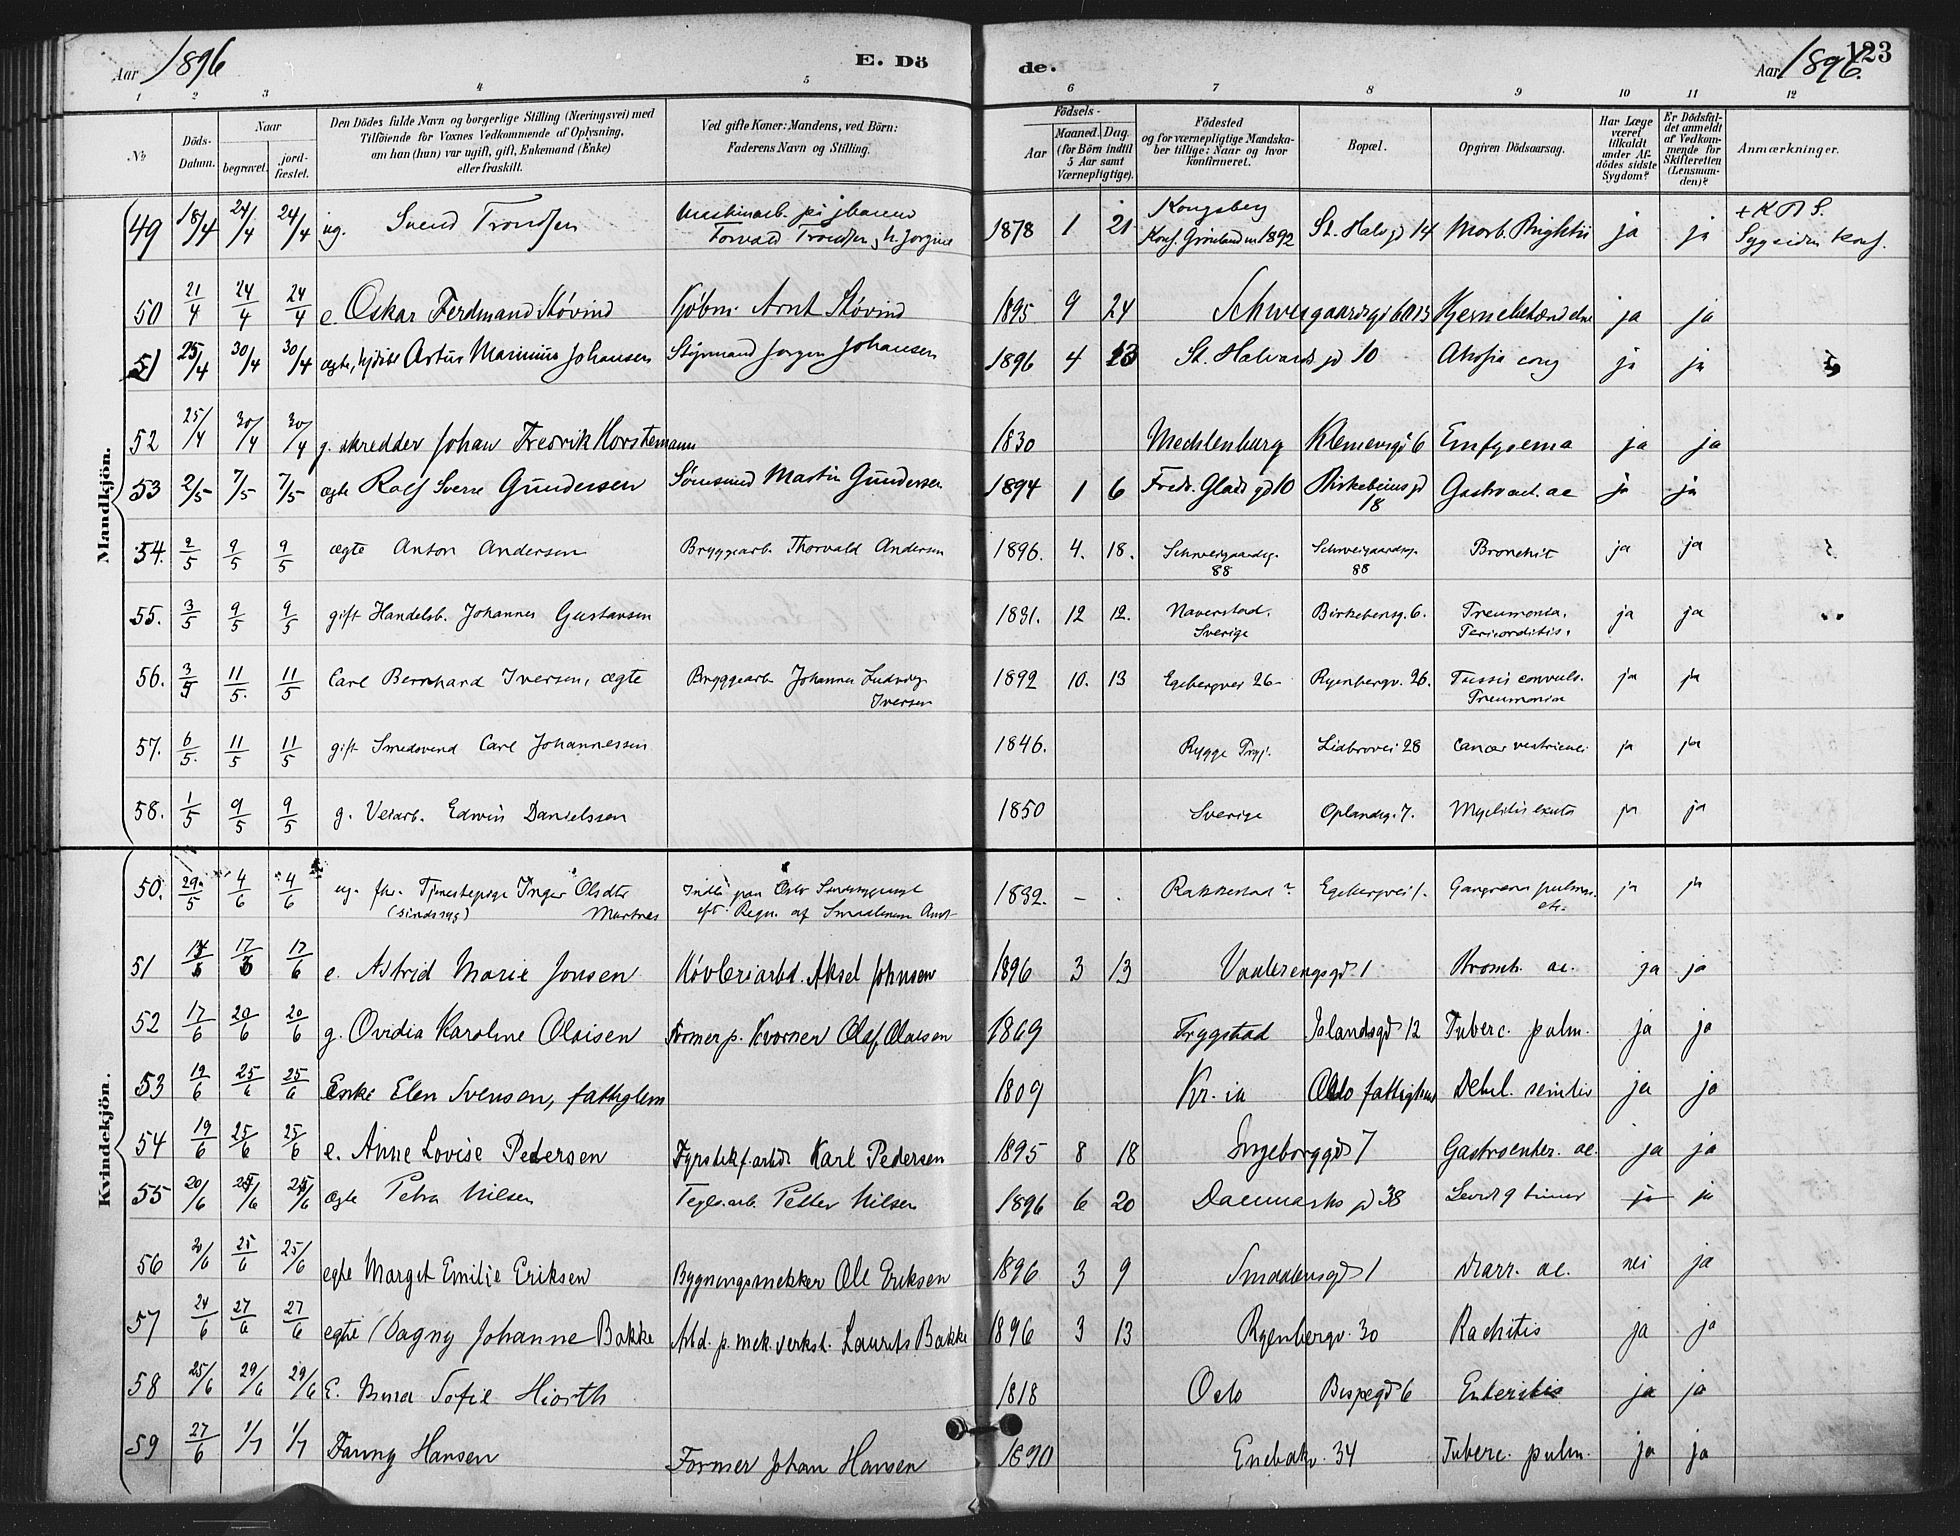 Aar 1896 E. Dö
de. Aar 1896. 123
1 2 3 4 5 6 7 8 9 10 11 12
№ Döds-Datum. Naar begravet. jord-fæstet. Den Dödes fulde Navn og borgerlige Stilling (Næringsvei) med Tilföiende for Voxnes Vedkommende af Oplysning, om han (hun) var ugift, gift, Enkemand (Enke) eller fraskilt. Ved gifte Koner: Mandens, ved Börn: Faderens Navn og Stilling. Födsels- Aar Maaned. Dag. (for Börn indtil 5 Aar samt Værnepligtige). Födested og for værnepligtige Mandskaber tillige: Naar og hvor konfirmeret. Bopæl. Opgiven Dödsaarsag. Har Læge været tilkaldt under Afdödes sidste Sygdom? Er Dödsfaldet anmeldt af Vedkommende for Skifteretten (Lensmanden)? Anmærkninger.
Mandkjön.
49 18/4 24/4 24/4 ug. Svend Trondsen Maskinarb. på jbanen Torvald Trondsen, h. Jorgine 1878 1 21 Kongsberg Konf. Grønland 1892 St. Halv gd 14 Morb. Brightii ja ja
50 21/4 24/4 24/4 e. Oskar Ferdinand Støvind Kjöbm. Arnt Støvind 1895 9 24 Schweigaardsgd Hjernebetændelse ja ja
51 25/4 30/4 30/4 ægte, hjdöbt Artur Marinius Johansen Styrmand Jørgen Johansen 1896 4 23 St. Halvards gd 10 Atrofia cong ja ja
52 25/4 30/4 30/4 g. skredder Johan Fredrik Horstemann 1830 Mecklenburg Klemensgd 6 Emfysema ja ja
53 2/5 7/5 7/5 ægte Rolf Sverre Gundersen Martin Gundersen 1894 1 6 Fredr. Glads gd 10 Birkebeins gd 18 Gastroent. ac ja ja
54. 2/5 9/5 9/5 ægte Anton Andersen Bryggearb. Thorvald Andersen 1896. 4. 18. Schweigaardsg. 88 Schweigaardsg. 88 Bronchit ja ja
55. 3/5 9/5 9/5 gift Handelsb. Johannes Gustavsen 1831. 12 12. Naverstad. Sverige Birkebeinsg. 6. Pneumonia. Pericarditis. ja ja
56. 3/5 11/5. 11/5 Carl Bernhard Iversen, ægte Bryggearb Johannes Ludvig Iversen 1892 10. 13 Egebergvei 26- Ryenbergv. 26. Tussis convuls. Pneumonia ja ja
57. 6/5. 11/5 11/5 gift Smedsvend Carl Johannessen 1846. Rygge Prgj. Lidbrovei 28 Cancer ventriculi ja ja
58. 1/5 9/5 9/5 g. Veiarb. Edwin Danielssen 1850 Sverige Oplandsg. 7. Myelitis ja ja
Kvindekjön.
50. 29/5 4/6 4/6 ug. fhv. Tjenestepige Inger Olsdtr (sindssyg) Indl. paa Oslo Sindssygeasyl eft. Regn. af Smaalenene Amt 1832. - . Rakkestad? Egebergvei 1. Gangræna pulmon. etc. ja ja
51 17/6 e. Astrid Marie Jonsen Høvleriarbd. Aksel Johnsen 1896 3 13 Vaalerengsgd 1 Bronch. ac. ja ja
52 17/6 20/6 20/6 g. Ovidia Karoline Olaisen Former p. Kværner Olaf Olaisen 1869 Trygstad Jslandsgd 12 Tuberc. pulm. ja ja
53 19/6 25/6 25/6 Enke Elen Svensen, fattiglem 1809 Kr. ia Oslo fattighus Debil. senilis ja ja
54 19/6 25/6 25/6 e. Anne Lovise Pedersen Fyrstikfarbd. Karl Pedersen 1895 8 18 Ingeborggd 7 Gastroenter. ac. ja ja
55 20/6 25/6 25/6 ægte Petra Nilsen Teglv.arb. Petter Nilsen 1896 6 20 Danmarks gd 38 Levet 9 timer ja ja
56 20/6 25/6 25/6 egte Margit Emilie Eriksen Bygningssnekker Ole Eriksen 1896 3 9 Smaalensgd 1 Diarr. ac. nei ja
57 24/6 27/6 27/6 egte Dagny Johanne Bakke Arbd. p. mek. verkst. Laurits Bakke 1896 3 13 Ryenbergv. 30 Rachitis ja ja
58 25/6 29/6 29/6 E. Anna Sofie Hiorth 1818 Oslo Bispegd 6 Enteritis ja ja
59 27/6 1/7 1/7 Fanny Hansen Former Johan Hansen 1890 Enebakv. 34 Tuberc. pulm. ja ja